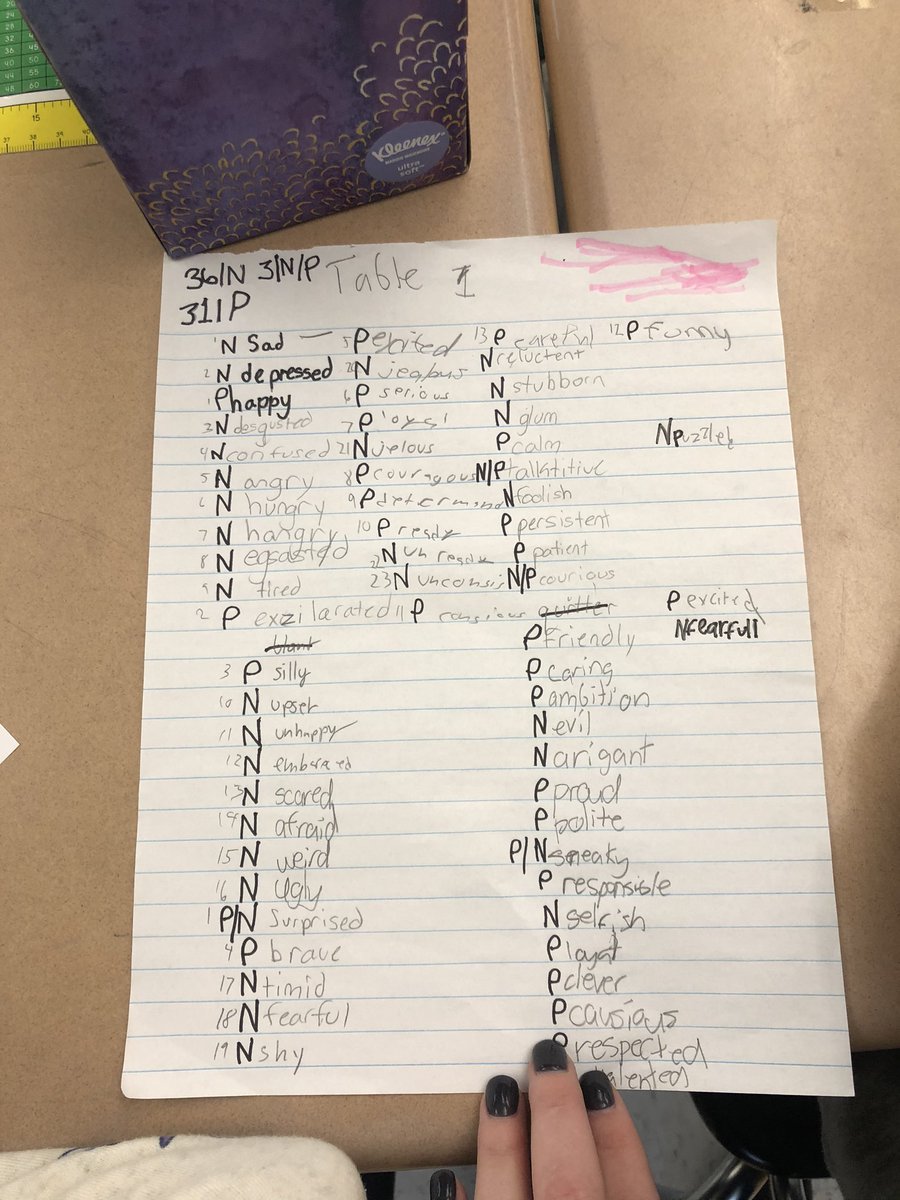 15
37 38 39 40
Kleenex
ultra soft
36/N 3/N/P Table 1
311P
1 N Sad — 5 P excited 13 P careful 12 P funny
2 N depressed 20 N jealous N reluctent
1 P happy 6 P serious N stubborn
3 N desgusted 7 P loyal N glum
4 N confused 21 N jelous P calm N puzzled
5 N angry 8 P couragous N/P talktitive
6 N hungry 9 P determind N foolish
7 N hangry 10 P ready P persistent
8 N eqsasted 22 N un ready P patient
9 N tired 23 N unconsis N/P courious
2 P exzilarated 11 P consious quitter P excited
blunt P Friendly N fearfull
3 P silly P Caring
10 N upset P ambition
11 N unhappy N evil
12 N embarased N arigant
13 N scared P proud
14 N afraid P polite
15 N weird P/N sneaky
16 N Ugly P responsible
1 P/N Surprised N selfish
4 P brave P loyal
17 N timid P clever
18 N fearful P causious
19 N shy P respected
talented